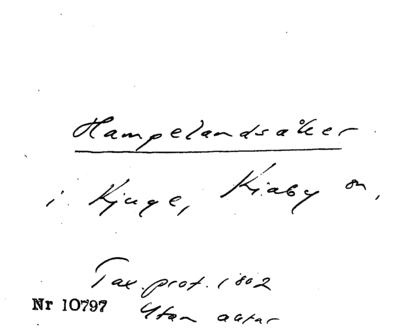 Hampelandsåker
i Kjuge, Kiaby sn,
Tax. prot. 1802
Nr 10797 Utan aktar